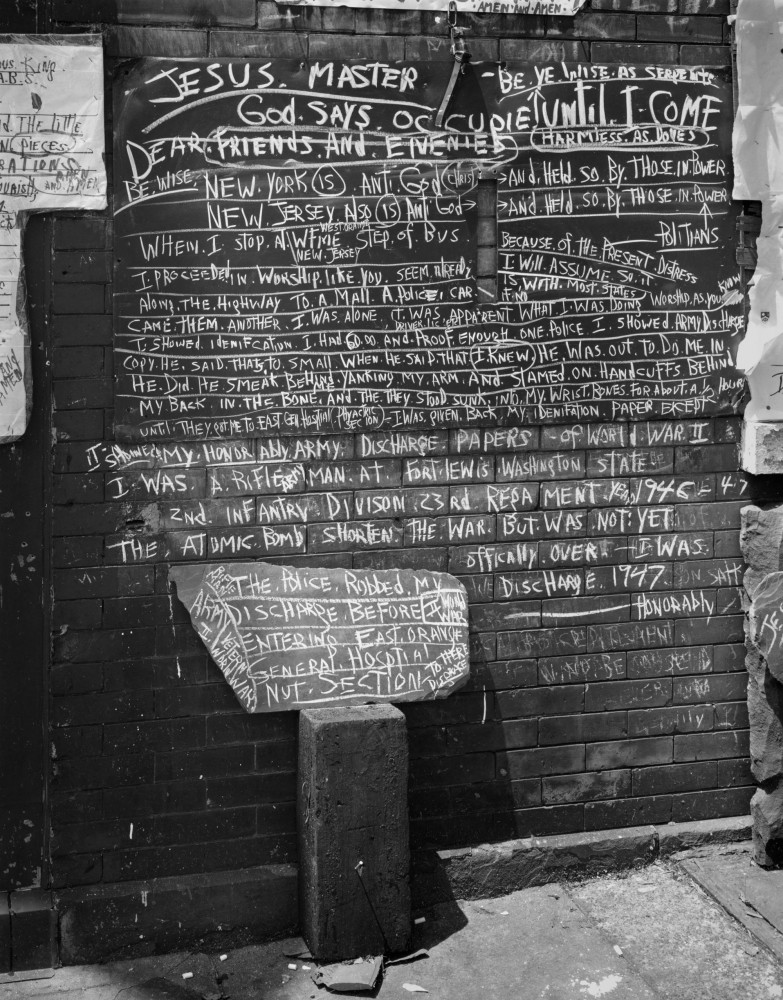 AMEN AND AMEN
JESUS. MASTER
God. SAYS. OCCUPIE! UNTIL. I. COME
- BE. YE. WISE. AS SERPENTS
HARMLESS. AS. DOVES
DEAR. FRIENDS. AND. ENENIES
BE. WISE
NEW. YORK (IS) ANTI. God CHRIST → And. Held. So. By. THOSE. IN. POWER
NEW. JERSEY. Also (IS) ANTI God → → And. Held. So. By. THOSE. IN. POWER
POLITIANS
WHEN. I. STOP. AT. STEP. of BUS
WEST. ORANGE
NEW. JERSEY
BECAUSE. OF. THE. PRESENT. DISTRESS
I. WILL. ASSUME. SO. IT
IS. WITH. MOST. STATES
I PROCEEDED. IN. WORSHIP. LIKE. YOU. SEEM. ALREADY
WORSHIP. AS. YOU KNOW
ALONG. THE. HIGHWAY. TO. A. MALL. A. POLICE. CAR
CAME. THEM. ANOTHER. I. WAS. ALONE. IT. WAS. APPARENT WHAT. I. WAS. DOING
DRIVER. LIC
I. SHOWED. IDENIFCATION. I. HAD 60.00 AND. PROOF. ENOUGH. ONE. POLICE. I. SHOWED. ARMY. DISCHARGE
COPY. HE. SAID. THATS. TO. SMALL. WHEN. HE. SAID. THAT (I. KNEW) HE. WAS. OUT. TO. DO. ME IN
HE. Did. HE SMEAK BEHIND. YANKING. MY. ARM. AND. SLAMED. ON. HANDCUFFS BEHIND
MY. BACK. IN. THE. BONE. AND. THE. THEY STOOD SUNK. INTO. MY. WRIST. BONES. FOR. ABOUT. A ½ HOUR
UNTIL. THEY. GOT ME. TO EAST. GEN. HOSPITAL PHYACTRIC SECTION - I. WAS. GIVEN. BACK. MY. IDENIFATION. PAPER. EXCEPT
MY. HONOR ABLY. ARMY. DISCHARGE PAPERS - OF WORLD. WAR. II
I WAS. A. RIFLE MAN. AT. FORT LEWIS WASHINGTON STATE
2nd. INFANTRY DIVISON. 23rd REGA MENT. 1946 - 47
THE, ATOMIC BOMB SHORTEN. THE WAR. BUT. WAS. NOT. YET
OFFICALLY. OVER. - I. WAS
DISCHARGE. 1947
HONORABLY
RIFLE MAN
THE. POLICE. ROBBED. MY
DISCHARGE. BEFORE II WORLD WAR
ENTERING. EAST. ORANGE
GENERAL. HOSPITIAL
NUT. SECTION
TO THERE
DISGRACE
ARMY. VETERAN
II WORLD WAR
King
The Little
PIECES
RATIONS
AND AMEN
AMEN